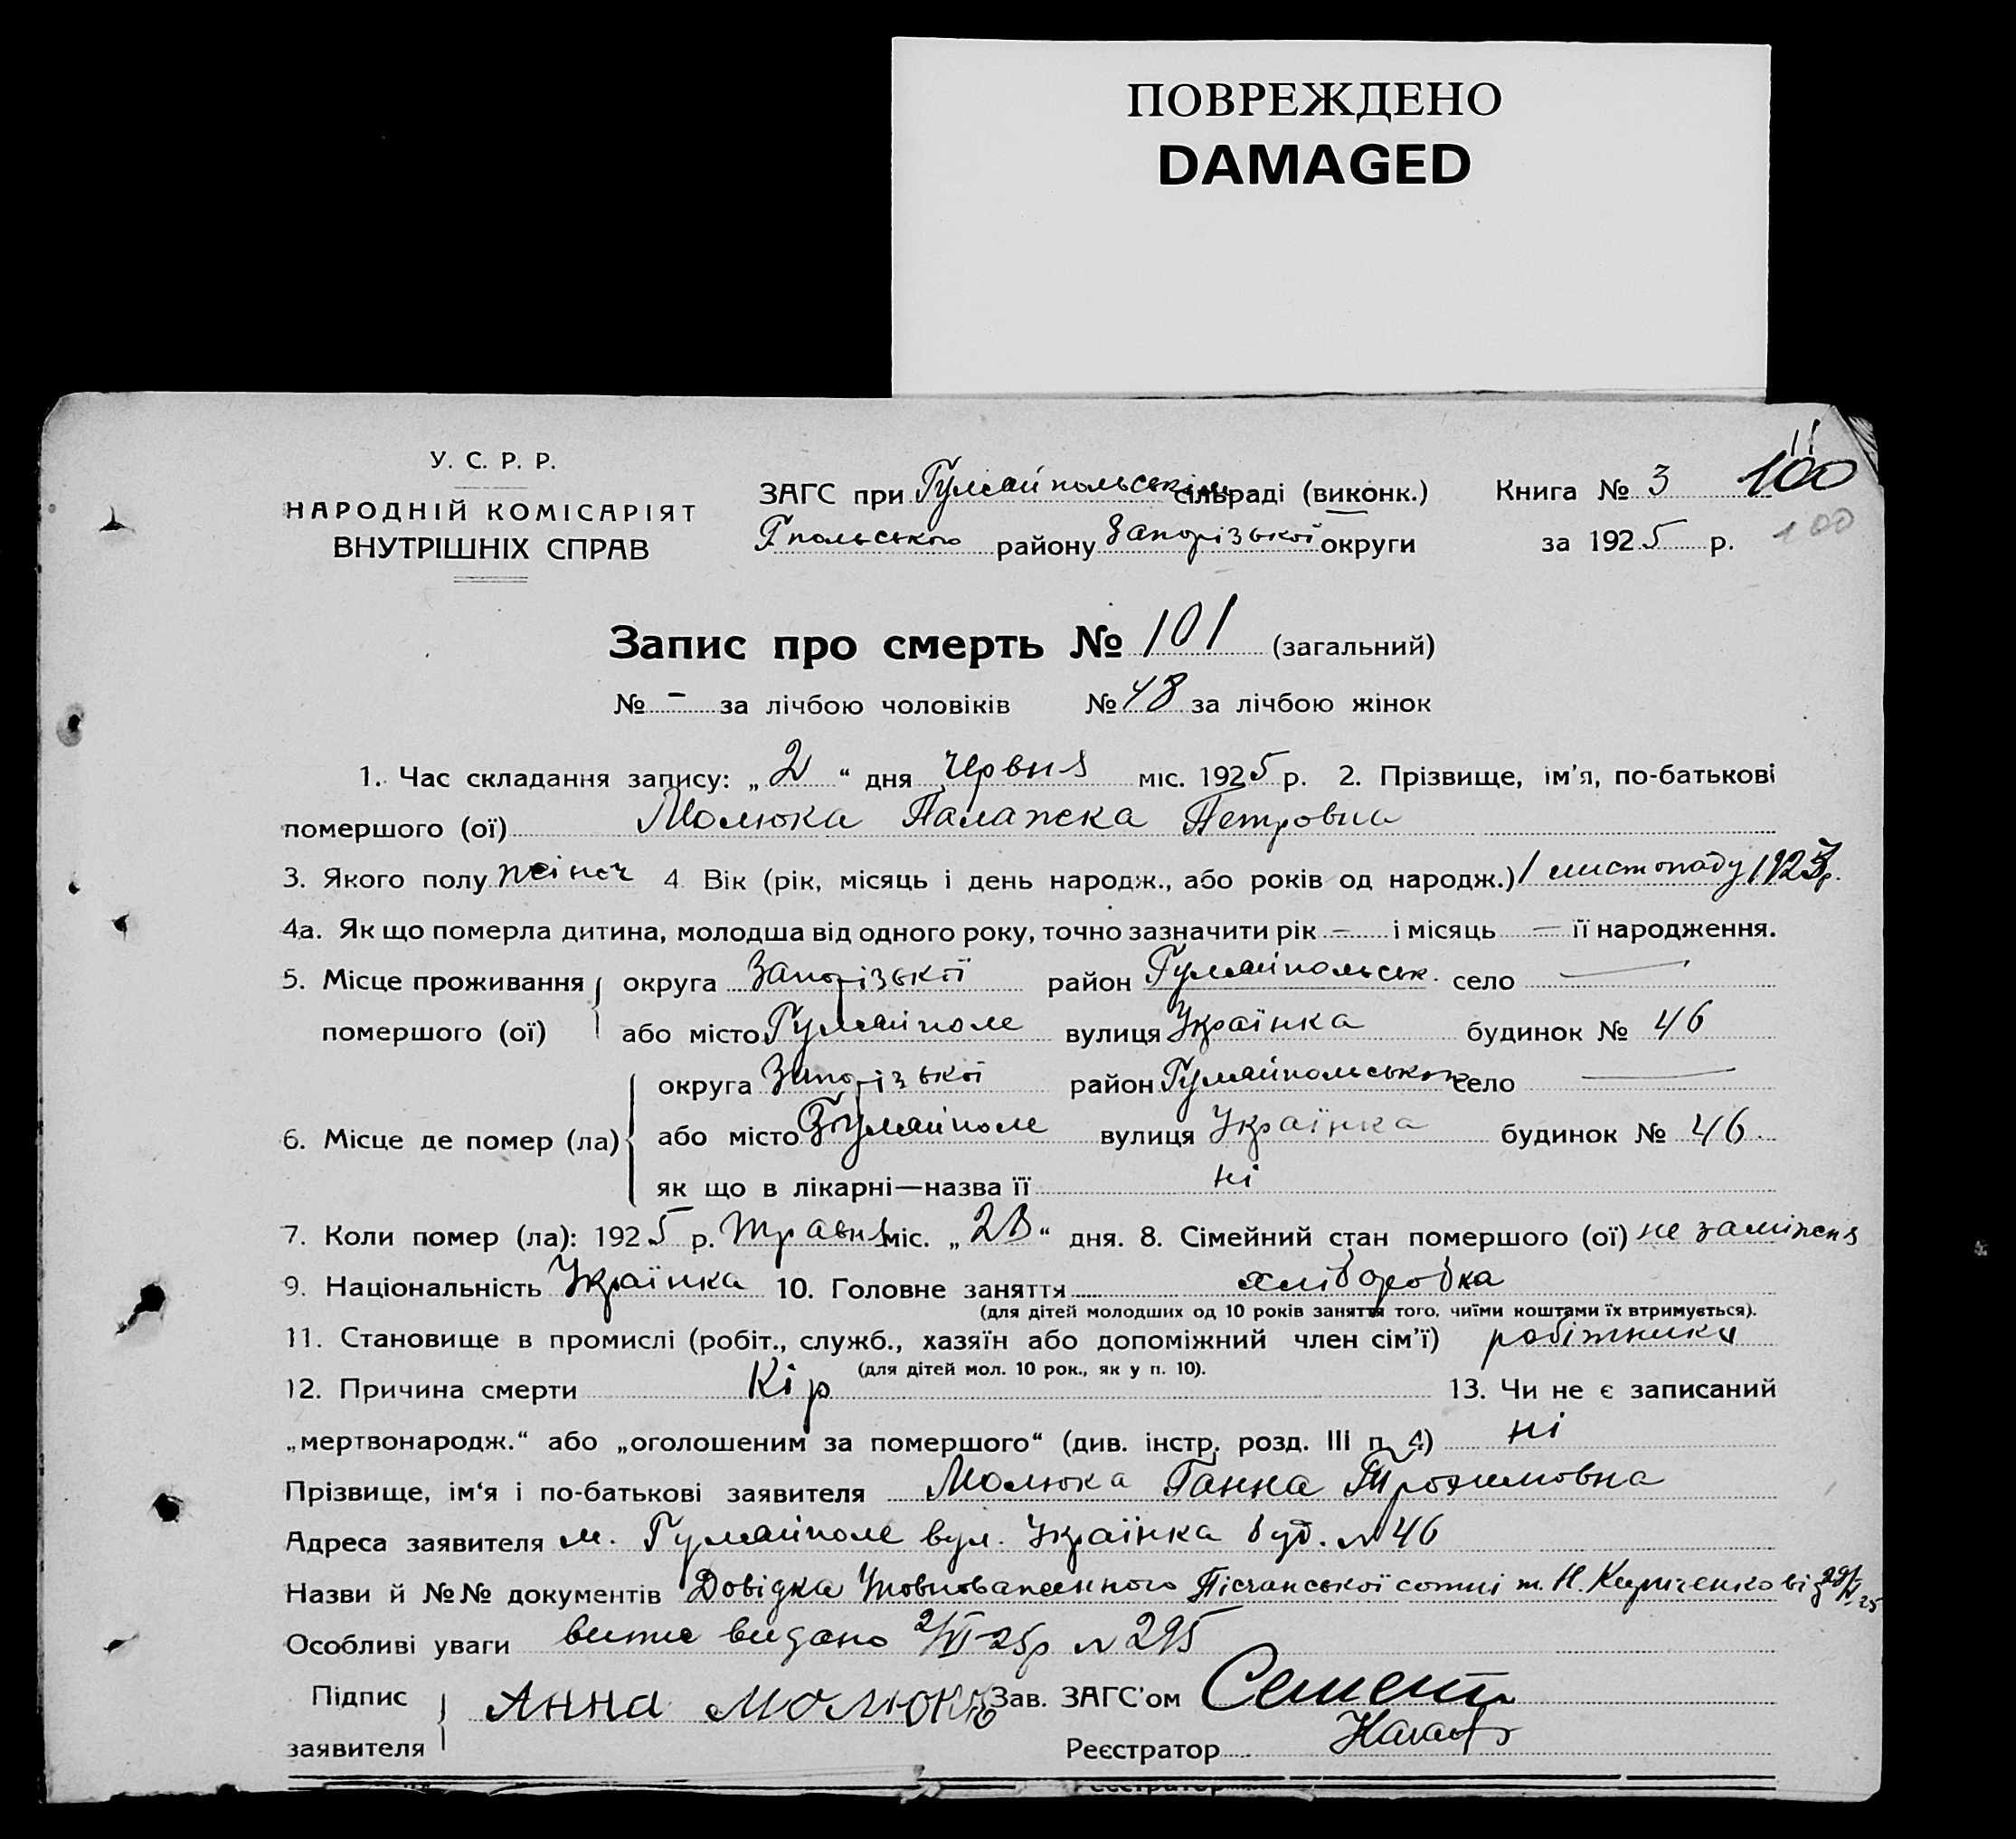 ПОВРЕЖДЕНО
DAMAGED
У. С. Р. Р.
НАРОДНІЙ КОМІСАРІЯТ
ВНУТРІШНІХ СПРАВ
ЗАГС при Гуляйпольськім сільраді (виконк.)
Гпольського району Запорізької округи
Книга № 3 100
за 1925 р. 100
Запис про смерть № 101 (загальний)
№ - за лічбою чоловіків № 48 за лічбою жінок
1. Час складання запису: „2“ дня червня міс. 1925 р. 2. Прізвище, ім’я, по-батькові
помершого (ої) Малюка Палажка Петровна
3. Якого полу жіноч 4 Вік (рік, місяць і день народж., або років од народж.) 1 листопаду р.
4а. Як що померла дитина, молодша від одного року, точно зазначити рік — і місяць — її народження.
5. Місце проживання округа Запорізької район Гуляйпольськ. село —
помершого (ої) або місто Гуляйполе вулиця Українка будинок № 46
округа Запорізької район Гуляйпольського село —
6. Місце де помер (ла) або місто Гуляйполе вулиця Українка будинок № 46.
як що в лікарні—назва її ні
7. Коли помер (ла): 1925 р. травня міс. „28“ дня. 8. Сімейний стан помершого (ої) не заміжня
9. Національність Українка 10. Головне заняття хліборобка
(для дітей молодших од 10 років заняття того, чиїми коштами їх втримується).
11. Становище в промислі (робіт., служб., хазяїн або допоміжний член сім’ї) робітника
(для дітей мол. 10 рок., як у п. 10).
12. Причина смерти Кір 13. Чи не є записаний
„мертвонародж.“ або „оголошеним за помершого“ (див. інстр. розд. III п. 4) ні
Прізвище, ім‘я і по-батькові заявителя Малюка Ганна Трохимовна
Адреса заявителя м. Гуляйполе вул. Українка буд. № 46
Назви й №№ документів Довідка Уповноваженного Пісчанської сотні т. Н. Кириченко від 29/V-25
Особливі уваги витяг видано 2/VI-25р № 295
Підпис заявителя Анна Малюка Зав. ЗАГС’ом
Реєстратор